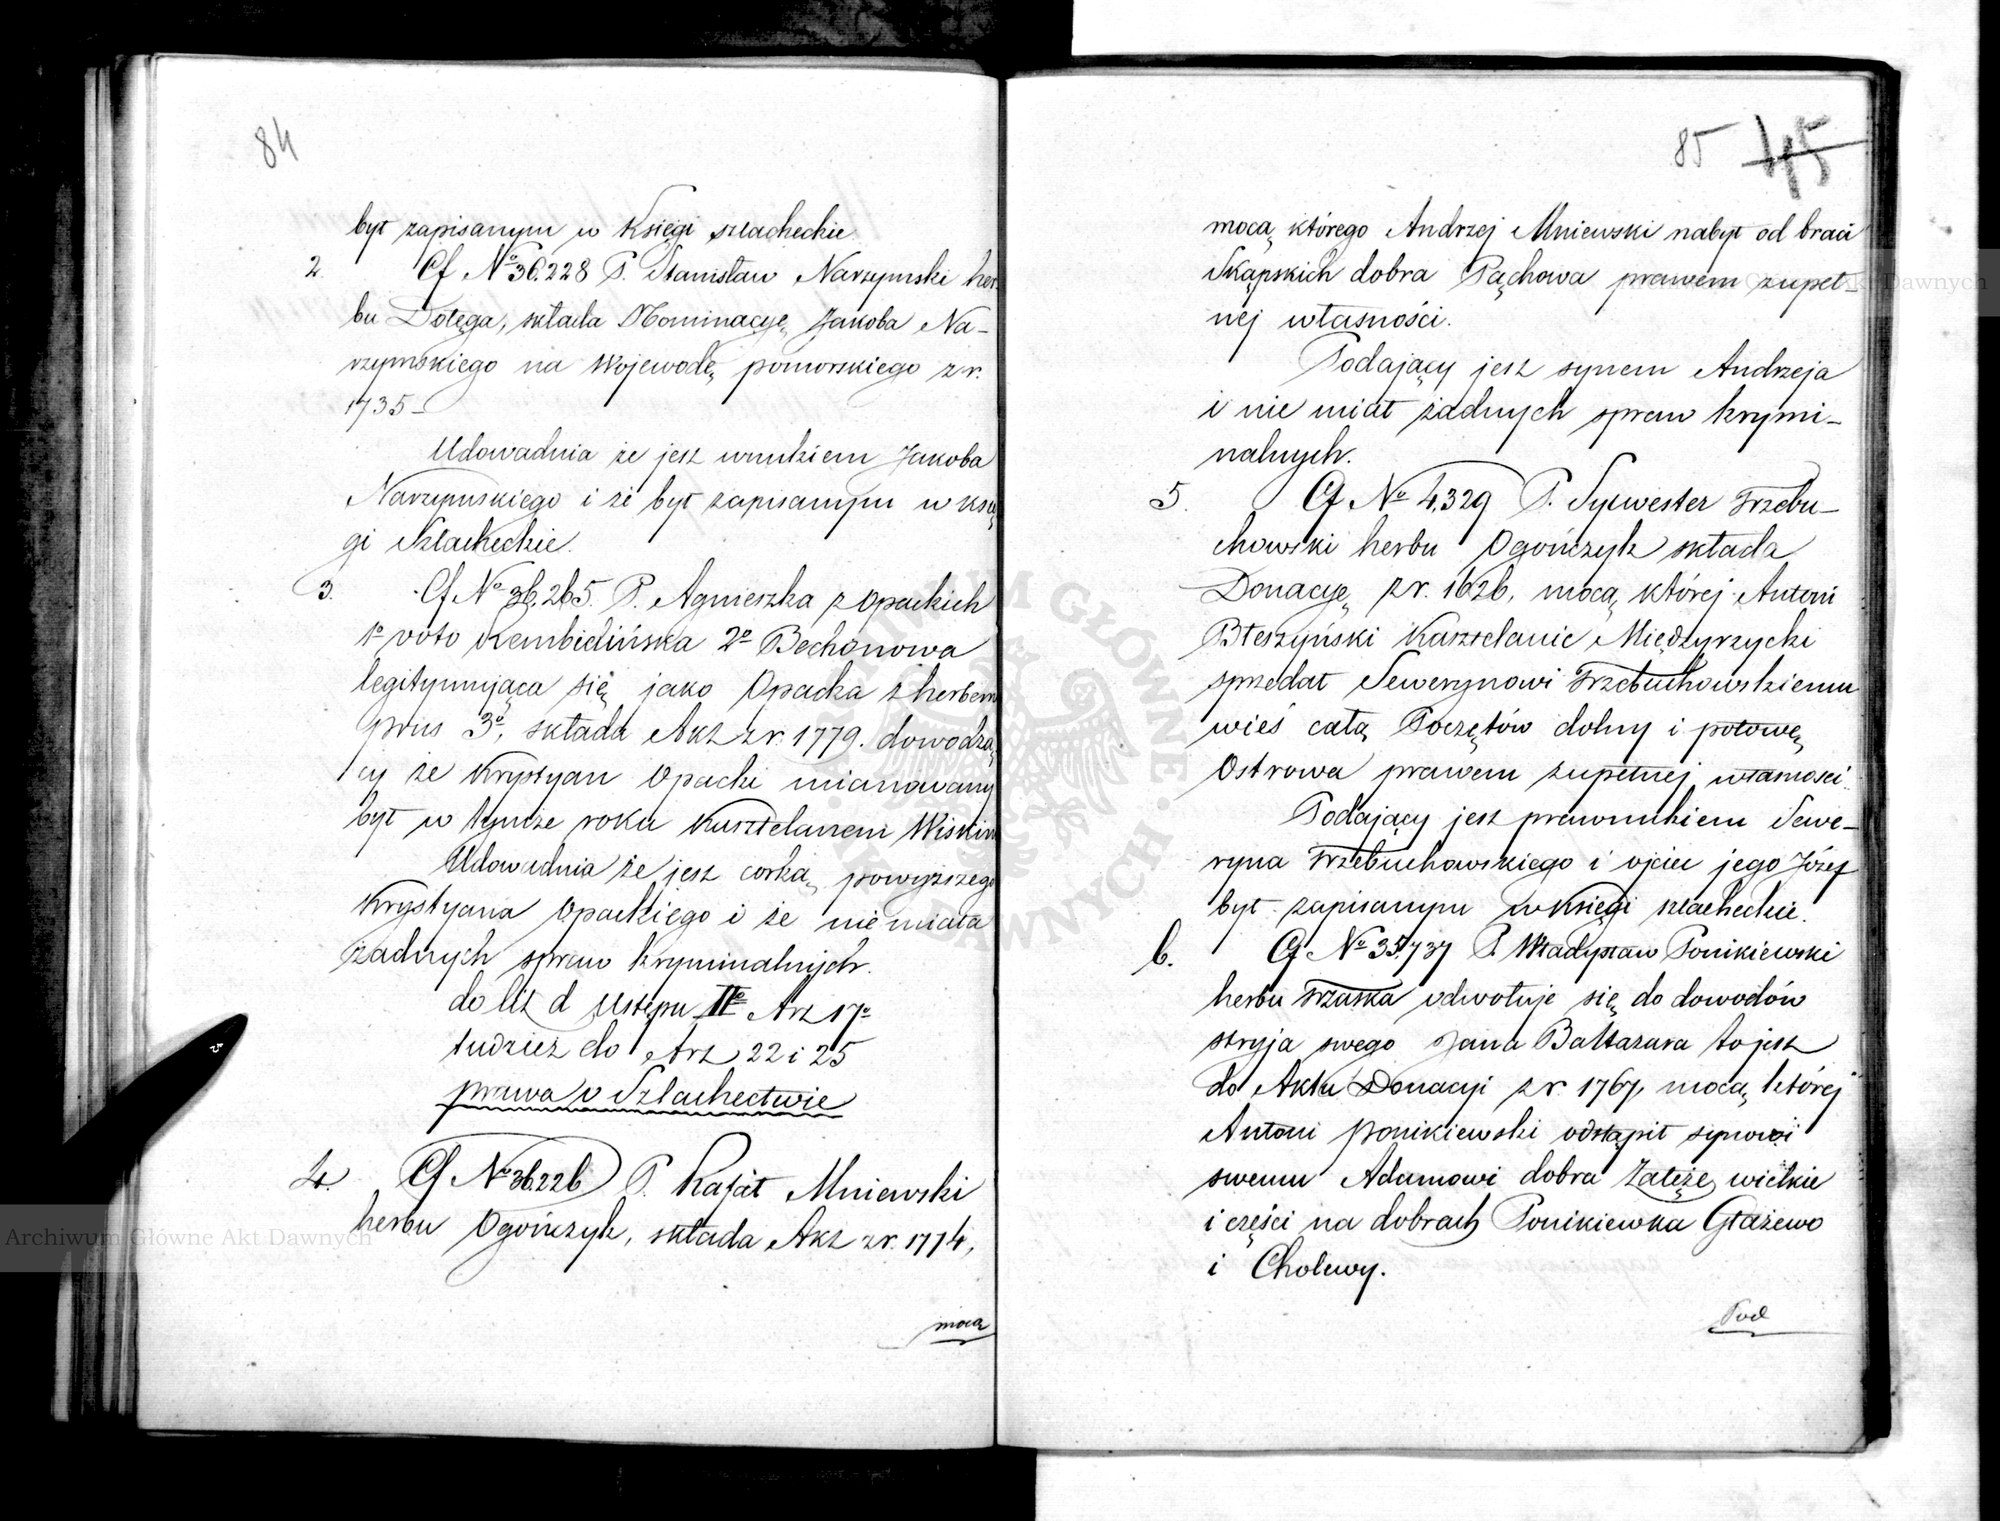 84
był zapisanym w Księgi szlacheckie
2. Cf Nº 36.228 P. Stanisław Narzymski her-
bu Dołęga, składa Nominacyę Jakoba Na-
rzymskiego na Wojewodę pomorskiego z r.
1735 –
Udowadnia że jest wnukiem Jakoba
Narzymskiego i że był zapisanym w Księ
gi Szlacheckie.
3. Cf Nº 36.265. P. Agnieszka z Opackich
1º voto Rembielińska 2º Bechonowa
legitymująca się jako Opacka z herbem
Prus 3º, składa Akt z r. 1779. dowodzą
cy że Krystyan Opacki mianowany
był w tymże roku Kasztelanem Wiskim
Udowadnia że jest corką powyższego
Krystyana Opackiego i że nie miała
żadnych spraw kryminalnych.
do lit d Ustępu IIº Art 17º
tudzież do Art 22 i 25
prawa o Szlachectwie
4. Cf Nº 36.226 P. Rafał Mniewski
herbu Ogończyk, składa Akt z r. 1774,
mocą
85 45
mocą którego Andrzej Mniewski nabył od braci
Skąpskich dobra Pąchowa prawem zupeł-
nej własności.
Podający jest synem Andrzeja
i nie miał żadnych spraw krymi-
nalnych.
5. Cf Nº 4,329 P. Sylwester Trzebu-
chowski herbu Ogończyk składa
Donacyę z r. 1626, mocą której Antoni
Błeszyński Kasztelanic Międzyrzycki
sprzedał Sewerynowi Trzebuchowskiemu
wieś całą Poczętów dolny i połowę
Ostrowa prawem zupełnej własności.
Podający jest prawnukiem Sewe-
ryna Trzebuchowskiego i ojciec jego Józef
był zapisanym w Księgi szlacheckie.
6. Cf Nº 35,737 P. Władysław Ponikiewski
herbu Trzaska odwołuje się do dowodów
stryja swego Jana Baltazara to jest
do Aktu Donacyi z r. 1767, mocą której
Antoni Ponikiewski odstąpił synowi
swemu Adamowi dobra Załęże wielkie
i części na dobrach Ponikiewka Głażewo
i Cholewy.
Pod
Archiwum Główne Akt Dawnych
ARCHIWUM GŁÓWNE AKT DAWNYCH
Akt Dawnych